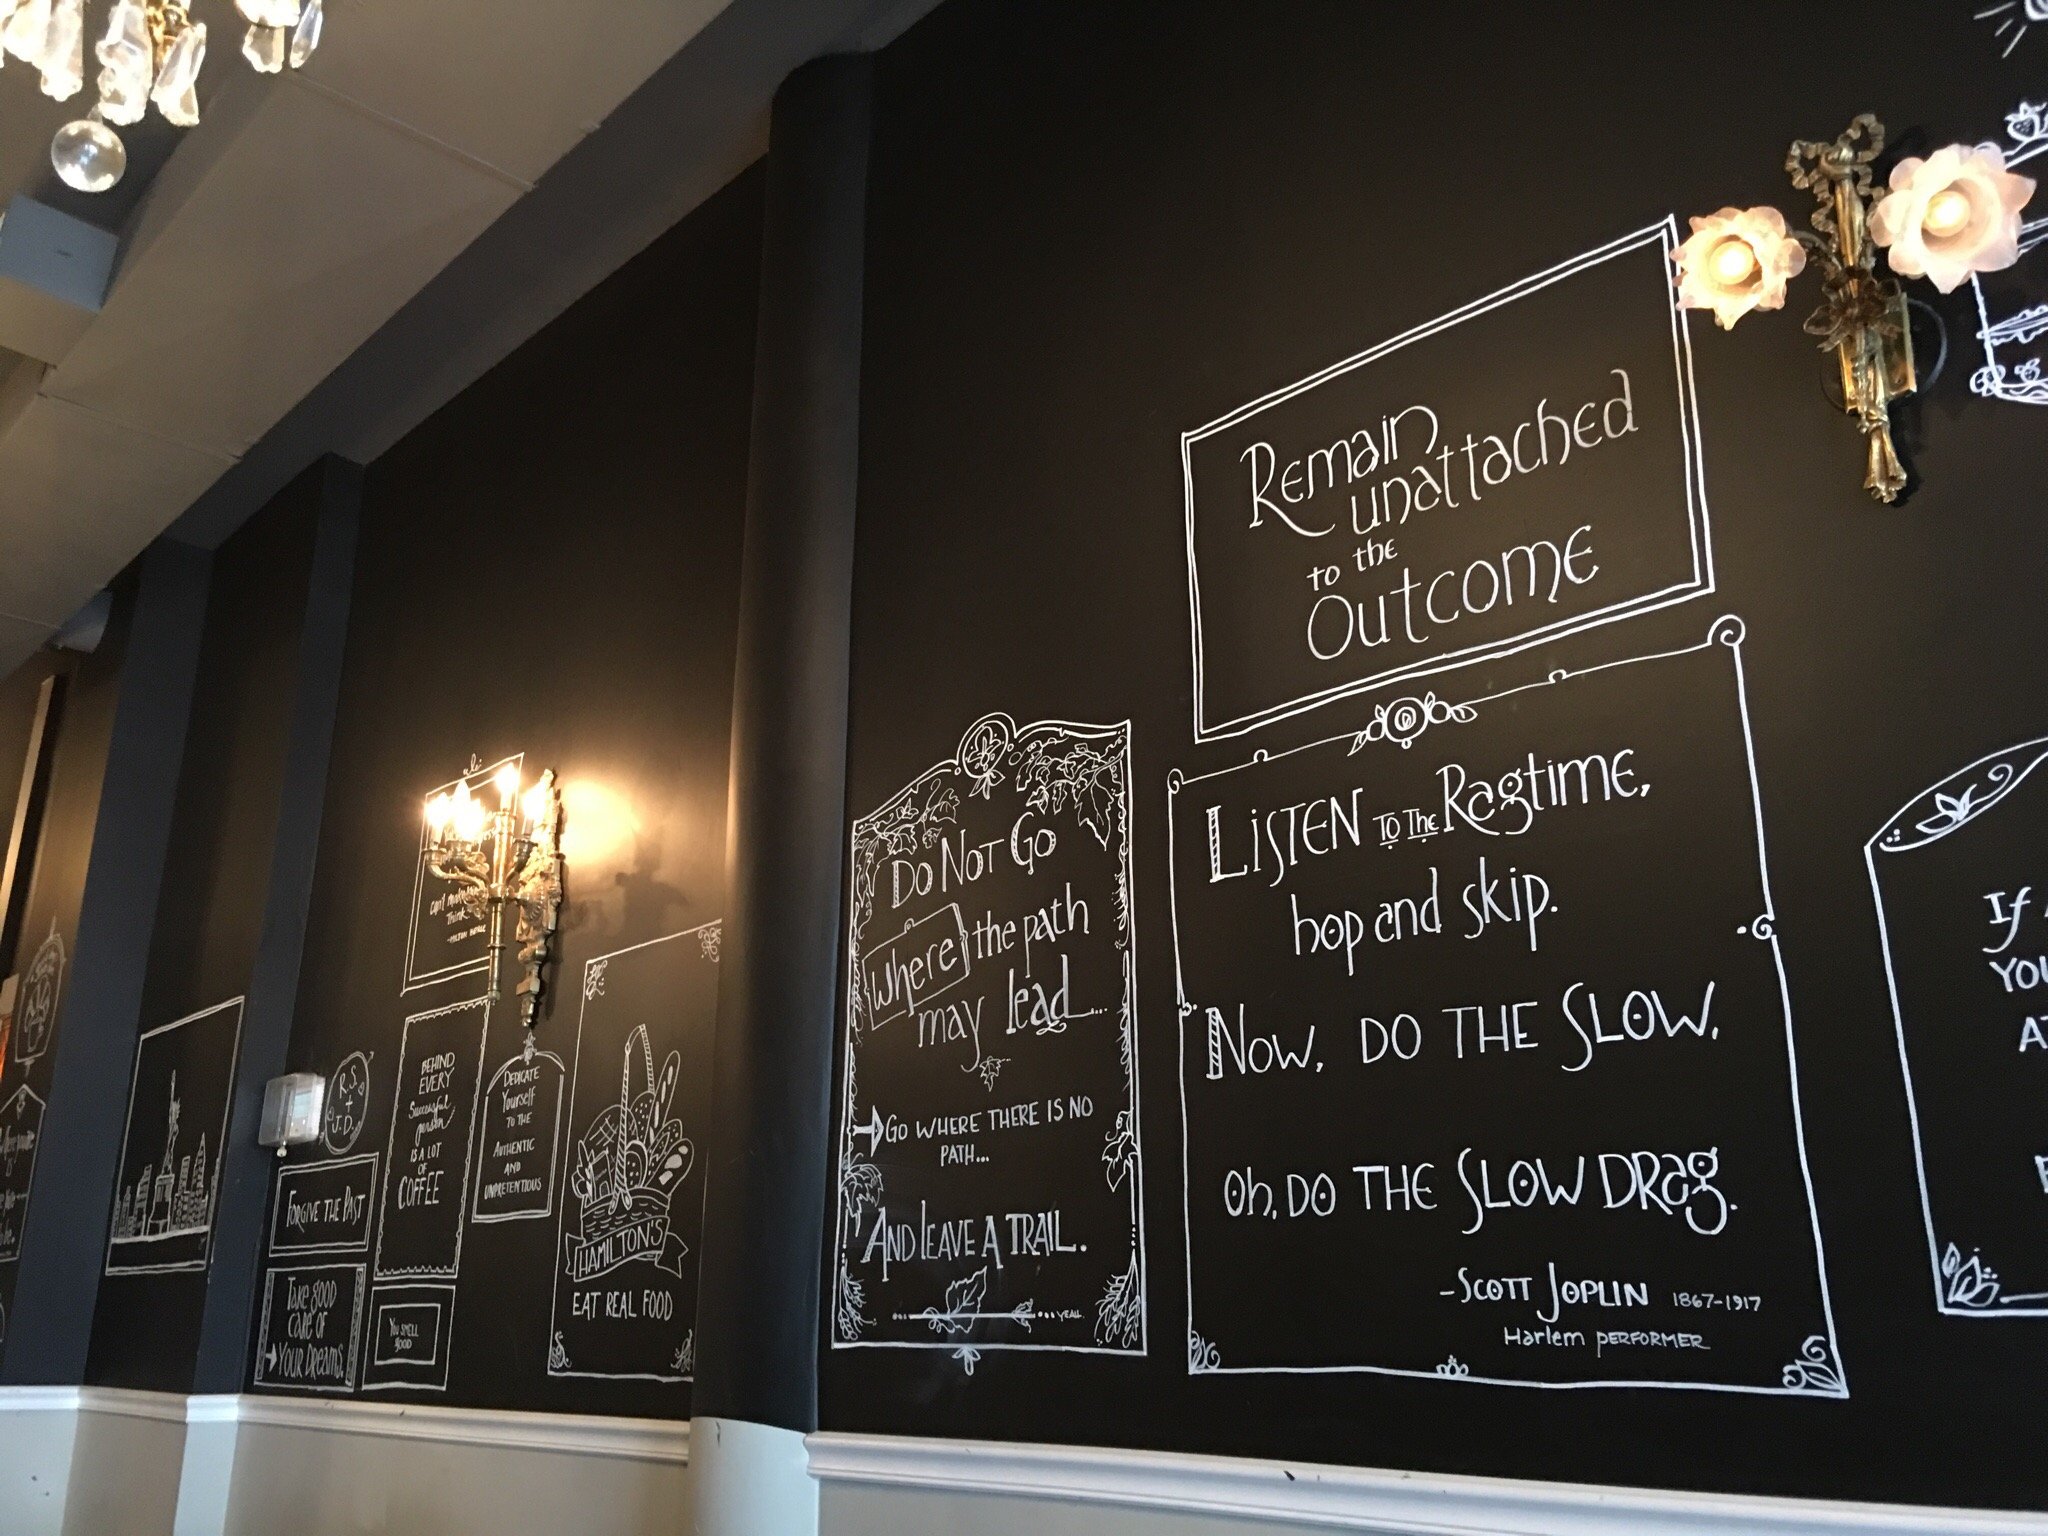 Remain
unattached
to the
Outcome
Listen to the Ragtime,
hop and skip.
Now, DO THE SLOW,
Oh, DO THE SLOW DRag.
-Scott Joplin 1867-1917
Harlem PERFORMER
DO NOT GO
where the path
may lead....
GO WHERE THERE IS NO
PATH...
AND LEAVE A TRAIL.
YEAH.
If
YOU
HAMILTON'S
EAT REAL FOOD
DEDICATE
Yourself
TO THE
AUTHENTIC
AND
UNPRETENTIOUS
BEHIND
EVERY
Successful
person
IS A LOT
OF
COFFEE
YOU SMELL
GOOD
R.S
+
J.D.
FORGIVE THE PAST
Take good
care of
YOUR DREAMS.
think